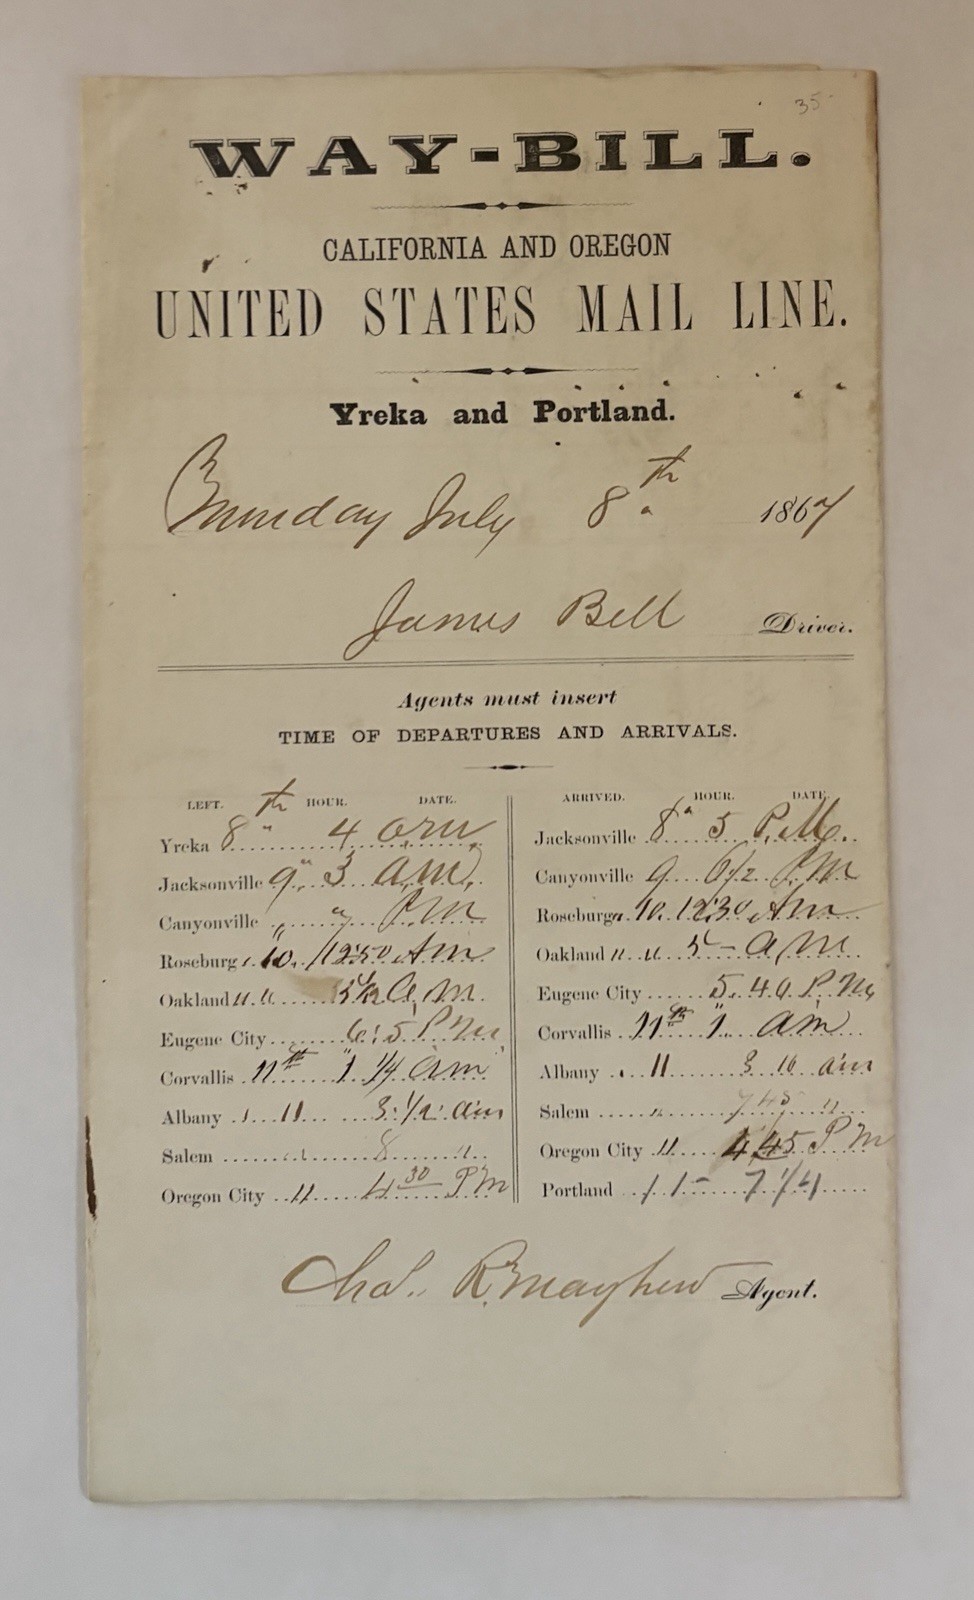 35
WAY-BILL.
CALIFORNIA AND OREGON
UNITED STATES MAIL LINE.
Yreka and Portland.
Munday July 8th 1867
James Bell Driver.
Agents must insert
TIME OF DEPARTURES AND ARRIVALS.
LEFT. HOUR. DATE.
Yreka 8th 4 a.m.
Jacksonville 9" 3 am.
Canyonville " 7 PM
Roseburg 10. 1250 Am
Oakland 11 11 5½ a.m.
Eugene City 6:5 P.M
Corvallis 11th 1 1/4 am
Albany 11 3.1/2 am
Salem 8 "
Oregon City 11 4 30 PM
ARRIVED. HOUR. DATE.
Jacksonville 8" 5 P.M.
Canyonville 9 6½ PM
Roseburg 10. 12.30 Am
Oakland 11 11 5 - a m
Eugene City 5.40 P.M
Corvallis 11th 1 am
Albany 11 3 10 am
Salem " 7 45 "
Oregon City 11 4 45 P m
Portland 11 - 7 1/4
Chas. R. Mayhew Agent.